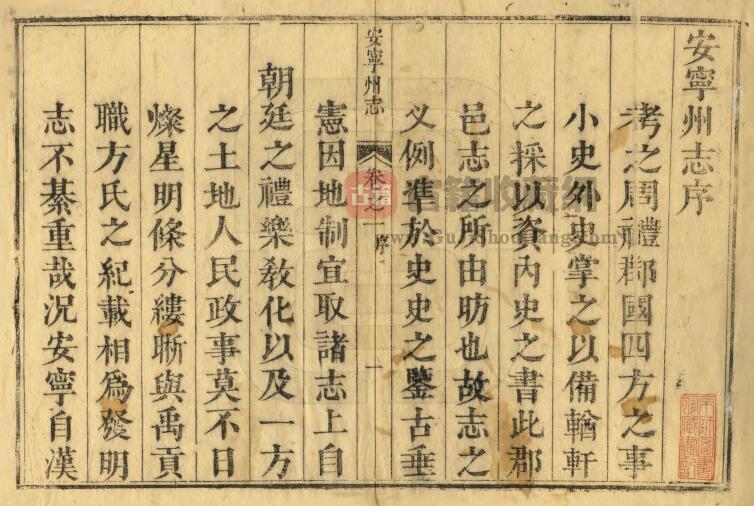 安寧州志序
考之周禮郡國四方之事
小史外史掌之以備輶軒
之採以資內史之書此郡
邑志之所由昉也故志之
义例準於史史之鑒古垂
安寧州志
卷之一 序
一
憲因地制宜取諸志上自
朝廷之禮樂教化以及一方
之土地人民政事莫不日
燦星明條分縷晰與禹貢
職方氏之紀載相爲發明
志不綦重哉況安寧自漢
古籍